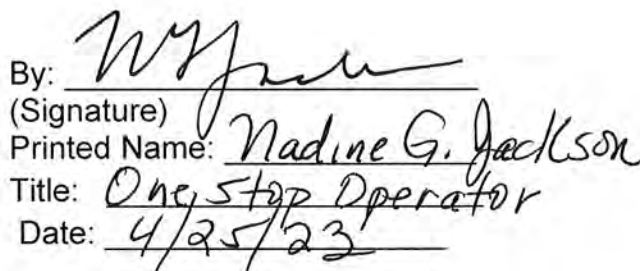 By:
(Signature)
Printed Name: Nadine G. Jackson
Title: One Stop Operator
Date: 4/25/23